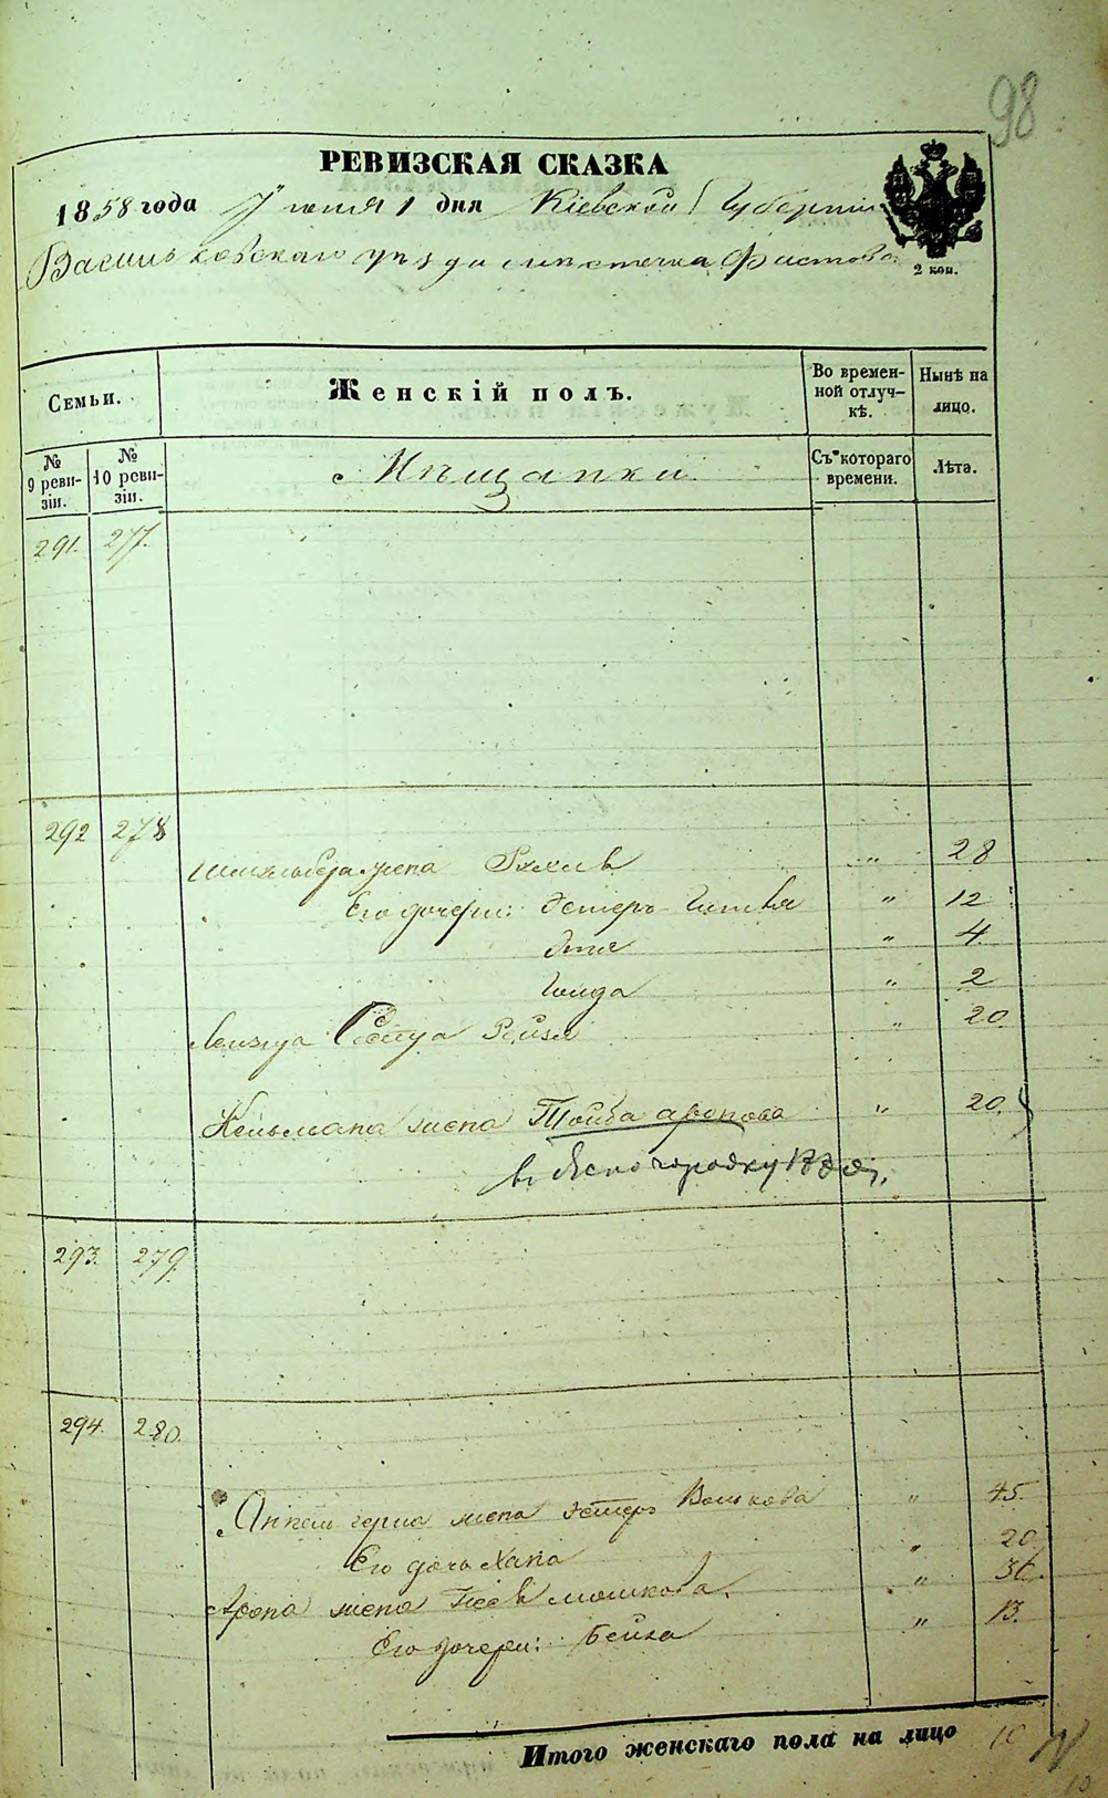 98
РЕВИЗСКАЯ СКАЗКА
1858 года Іюня 1 дня Кіевской Губерніи
Васильковскаго уѣзда мѣстечка Фастова
2 коп.
Семьи.
Женскій полъ.
Во времен-
ной отлуч-
кѣ.
Нынѣ на
лицо.
№
9 реви-
зіи.
№
10 реви-
зіи.
Мѣщанки
Съ котораго
времени.
Лѣта.
291. 277.
292 278
жена Рухля " 28
Его дочери: Эстеръ Гитля " 12
Этя " 4.
Голда " 2
Рейзя " 20.
Кельмана жена Тойба аронова " 20.
въ Ясногородку
293. 279.
294. 280.
Янкель герша жена Эстеръ Волькова " 45.
Его дочь Хана " 20
Арона жена Песя мошкова. " 36.
Его дочери: Бейла " 13.
Итого женскаго пола на лицо 10
10